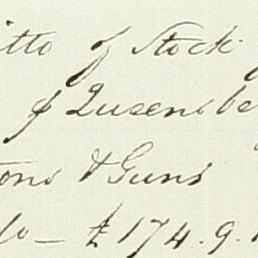 itto of Stock
of Queensbe
tons & Guns
do — £ 174.9.